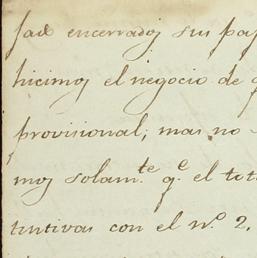 sad encerrados sus pap
hicimos el negocio de q
provisional; mas no
mos solam.te q.e el tot
tintivas con el n.o 2.